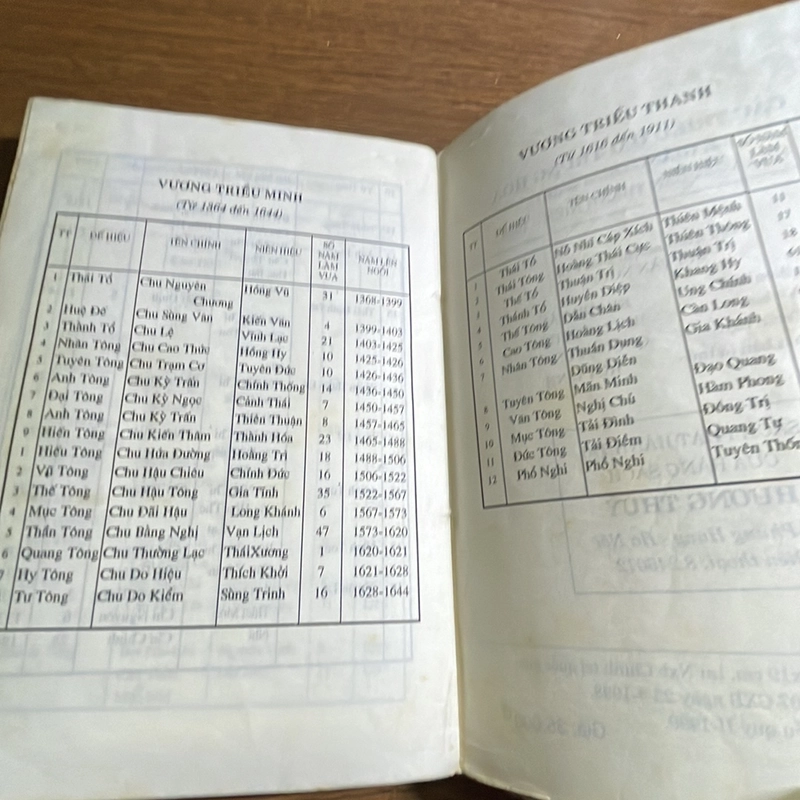 VƯƠNG TRIỀU MINH
(Từ 1364 đến 1644)
TT ĐẾ HIỆU TÊN CHÍNH NIÊN HIỆU SỐ NĂM LÀM VUA NĂM LÊN NGÔI
1 Thái Tổ Chu Nguyên Chương Hồng Vũ 31 1368-1399
2 Huệ Đế Chu Sùng Văn Kiến Văn 4 1399-1403
3 Thành Tổ Chu Lệ Vĩnh Lạc 21 1403-1425
4 Nhân Tông Chu Cao Thức Hồng Hy 10 1425-1426
5 Tuyên Tông Chu Trạm Cơ Tuyên Đức 10 1426-1436
6 Anh Tông Chu Kỳ Trấn Chính Thống 14 1436-1450
7 Đại Tông Chu Kỳ Ngọc Cảnh Thái 7 1450-1457
8 Anh Tông Chu Kỳ Trấn Thiên Thuận 8 1457-1465
9 Hiến Tông Chu Kiến Thâm Thành Hóa 23 1465-1488
1 Hiếu Tông Chu Hựu Đường Hoằng Trị 18 1488-1506
2 Vũ Tông Chu Hậu Chiếu Chính Đức 16 1506-1522
3 Thế Tông Chu Hậu Tông Gia Tĩnh 35 1522-1567
4 Mục Tông Chu Đãi Hậu Long Khánh 6 1567-1573
5 Thần Tông Chu Bằng Nghị Vạn Lịch 47 1573-1620
6 Quang Tông Chu Thường Lạc TháiXương 1 1620-1621
7 Hy Tông Chu Do Hiệu Thích Khởi 7 1621-1628
Tư Tông Chu Do Kiểm Sùng Trinh 16 1628-1644
VƯƠNG TRIỀU THANH
(Từ 1616 đến 1911)
TT ĐẾ HIỆU TÊN CHÍNH NIÊN HIỆU
1 Thái Tổ Nỗ Nhĩ Cáp Xích Thiên Mệnh
2 Thái Tông Hoàng Thái Cực Thiên Thông
3 Thế Tổ Thuận Trị Thuận Trị
4 Thánh Tổ Huyền Diệp Khang Hy
5 Thế Tông Dân Chân Ung Chính
6 Cao Tông Hoằng Lịch Càn Long
7 Nhân Tông Thuấn Dung Gia Khánh
Dũng Diễn
8 Tuyên Tông Mãn Minh Đạo Quang
9 Văn Tông Nghị Chú Hàm Phong
10 Mục Tông Tải Đình Đồng Trị
11 Đức Tông Tải Điềm Quang Tự
12 Phổ Nghi Phổ Nghi Tuyên Thốn